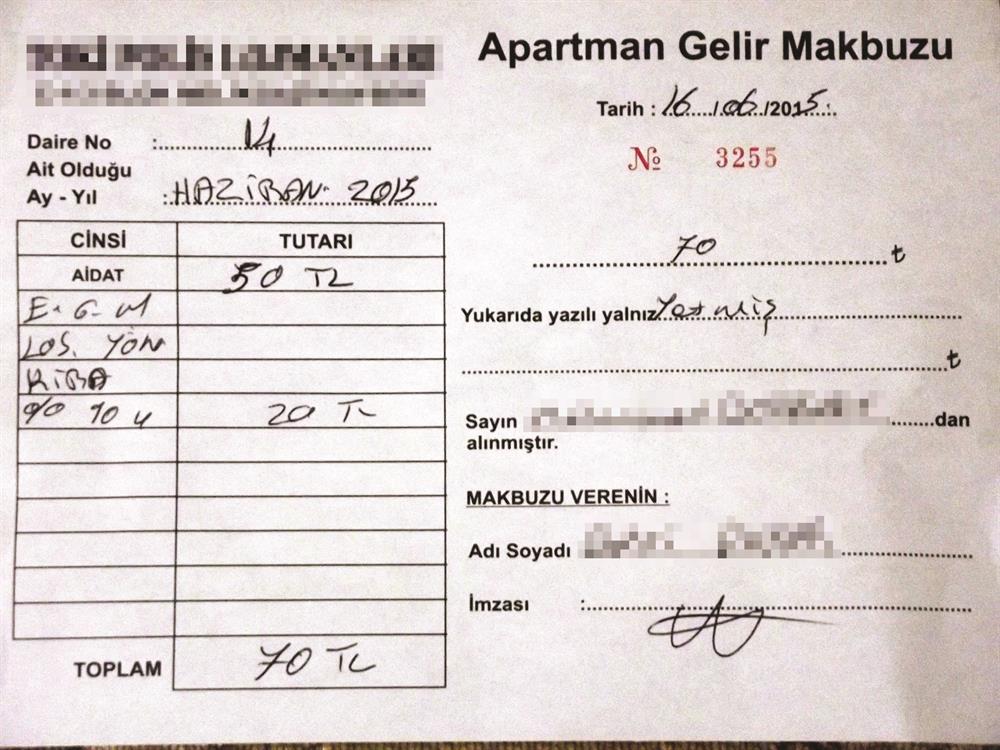 Apartman Gelir Makbuzu
Tarih : 16/06/2015
№ 3255
Daire No : 14
Ait Olduğu
Ay - Yıl : HAZİRAN 2015
CİNSİ TUTARI
AİDAT 50 TL
E. G. M
LOJ. YÖN
KİRA
% 10 u 20 TL
TOPLAM 70 TL
70 ₺
Yukarıda yazılı yalnız Yetmiş
₺
Sayın dan
alınmıştır.
MAKBUZU VERENİN :
Adı Soyadı
İmzası :